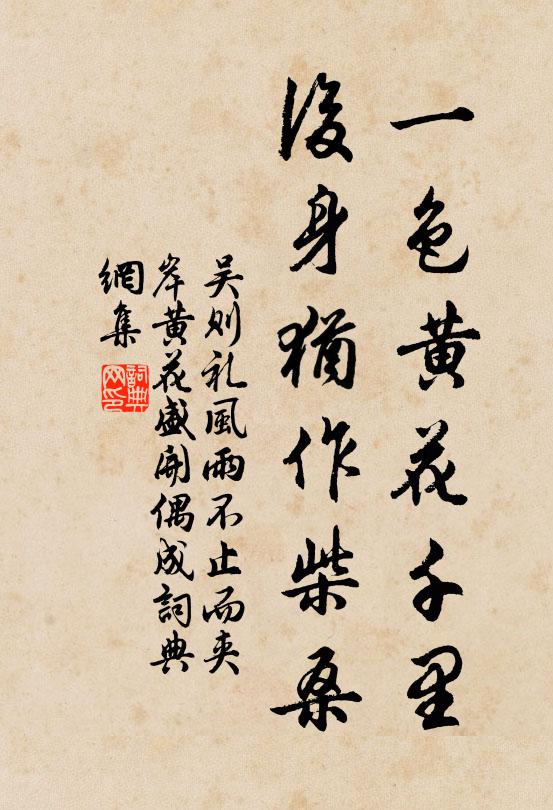 一色黄花千里
後身猶作柴桑
吴则礼風雨不止而夹
岸黄花盛開偶成詞典
網集
詞典
网印